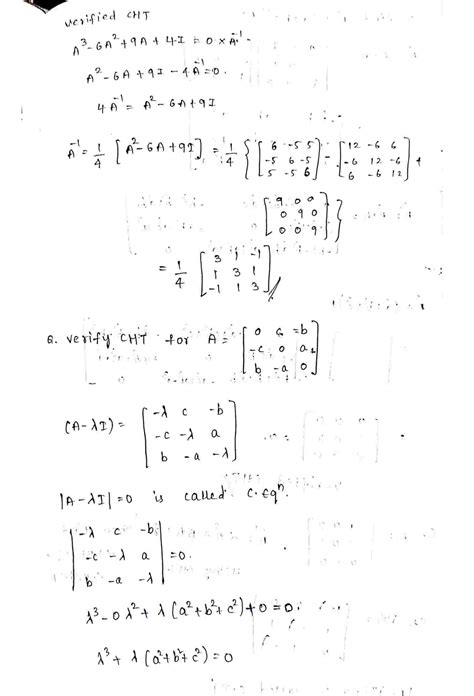 verified CHT
A³-6A²+9A+4·I = 0 × A⁻¹
A²-6A+9I-4A⁻¹=0.
4A⁻¹ = A²-6A+9I
A⁻¹ = 1/4 [A²-6A+9I] = 1/4 { [6 -5 5; -5 6 -5; 5 -5 6] - [12 -6 6; -6 12 -6; 6 -6 12] +
[9 0 0; 0 9 0; 0 0 9] }
= 1/4 [3 1 -1; 1 3 1; -1 1 3]
Q. verify CHT for A = [0 c -b; -c 0 a; b -a 0]
(A-λI) = [-λ c -b; -c -λ a; b -a -λ]
|A-λI|=0 is called C.Eqⁿ.
|-λ c -b; -c -λ a; b -a -λ| =0.
λ³-0λ²+λ(a²+b²+c²)+0=0.
λ³+λ(a²+b²+c²)=0